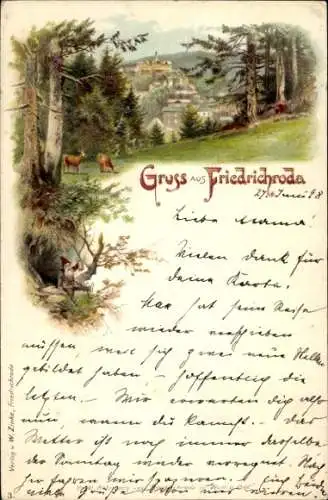 Gruss aus Friedrichroda
27ten Juni 98
Liebe Mama!
Vielen Dank für
deine Karte.
Max hat seine Reise
wieder verschieben
müssen, weil sich zwei neue
gebildet haben - hoffentlich die
letzten. - Wir erwarten dich also
nun, wann du kannst. - Das
Wetter ist noch immer dasselbe
der Sonntag wieder verregnet.
Verlag v. W. Zinke, Friedrichroda